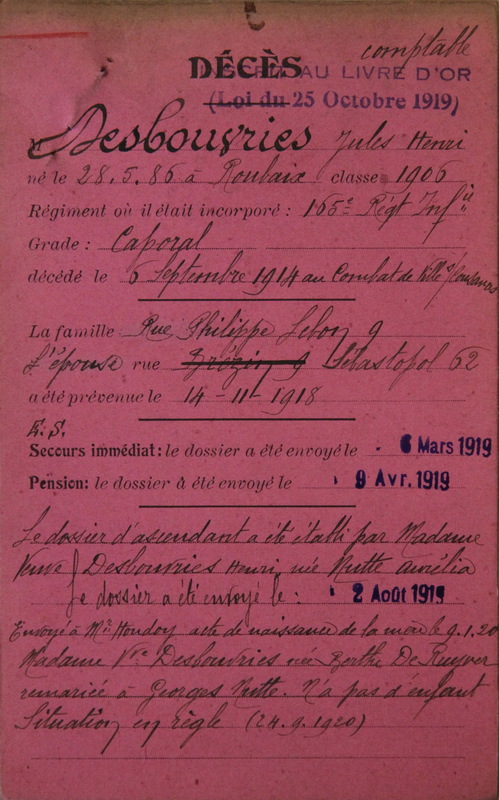 comptable
DÉCÈS
INSCRIT AU LIVRE D'OR
(Loi du 25 Octobre 1919)
M Desbouvries Jules Henri
né le 28.5.86 à Roubaix classe 1906
Régiment où il était incorporé : 165e Régt Infie
Grade : Caporal
décédé le 6 Septembre 1914 au Combat de Ville s/ Cousances
La famille Rue Philippe Lebon 9
L'épouse rue Sébastopol 62
a été prévenue le 14-11-1918
E.S.
Secours immédiat : le dossier a été envoyé le 6 Mars 1919
Pension : le dossier à été envoyé le 9 Avr. 1919
Le dossier d'ascendant a été établi par Madame
Veuve Desbouvries Henri, née Nutte Aurélia
le dossier a été envoyé le : 2 Août 1919
Envoyé à Mr Houdoy acte de naissance de la mère le 9.1.20
Madame Vve Desbouvries née Berthe De Ruyver
remariée à Georges Nutte. N'a pas d'enfant
Situation en règle (24.9.1920)